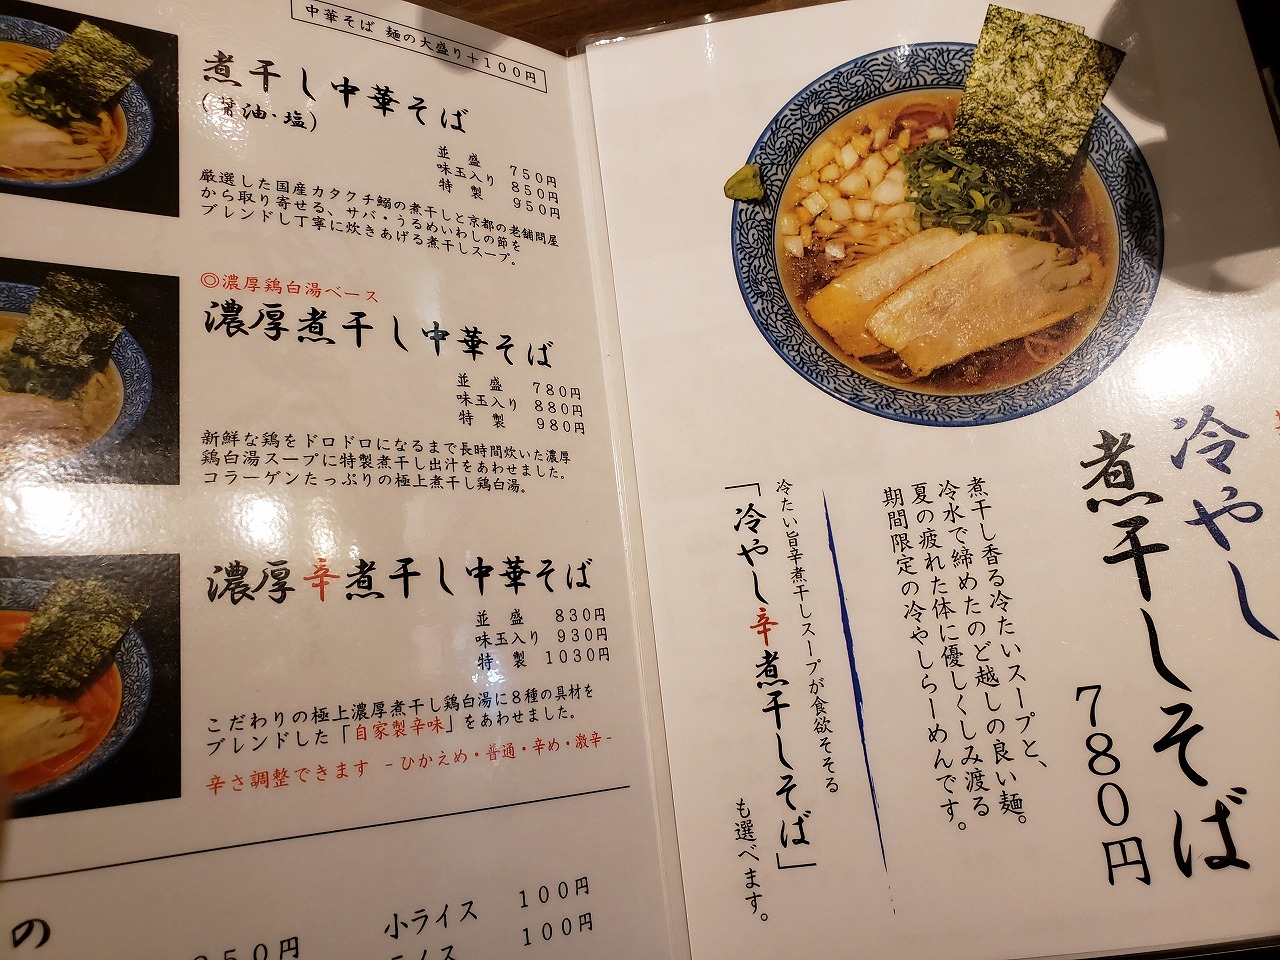 中華そば 麺の大盛り+100円
煮干し中華そば
(醤油・塩)
並 盛 750円
味玉入り 850円
特 製 950円
厳選した国産カタクチ鰯の煮干しと京都の老舗問屋
から取り寄せる、サバ・うるめいわしの節を
ブレンドし丁寧に炊きあげる煮干しスープ。
◎濃厚鶏白湯ベース
濃厚煮干し中華そば
並 盛 780円
味玉入り 880円
特 製 980円
新鮮な鶏をドロドロになるまで長時間炊いた濃厚
鶏白湯スープに特製煮干し出汁をあわせました。
コラーゲンたっぷりの極上煮干し鶏白湯。
濃厚辛煮干し中華そば
並 盛 830円
味玉入り 930円
特 製 1030円
こだわりの極上濃厚煮干し鶏白湯に8種の具材を
ブレンドした「自家製辛味」をあわせました。
辛さ調整できます -ひかえめ・普通・辛め・激辛-
の
50円
小ライス 100円
ライス 100円
冷やし
煮干しそば
780円
煮干し香る冷たいスープと、
冷水で締めたのど越しの良い麺。
夏の疲れた体に優しくしみ渡る
期間限定の冷やしらーめんです。
冷たい旨辛煮干しスープが食欲そそる
「冷やし辛煮干しそば」
も選べます。